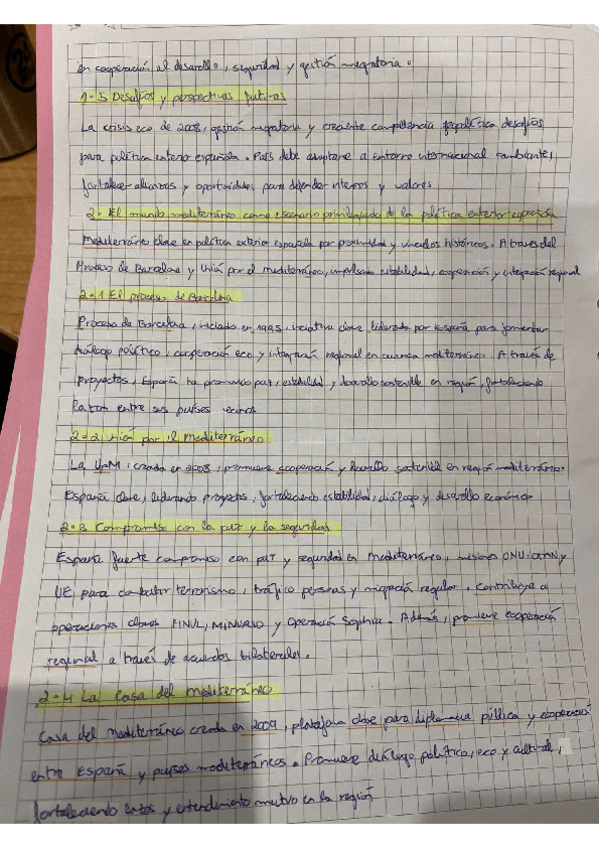 en cooperación al desarrollo, seguridad y gestión migratoria.
1-3 Desafíos y perspectivas futuras
La crisis eco de 2008, gestión migratoria y creciente competencia geopolítica desafíos
para política exterior española. País debe adaptarse a entorno internacional cambiante,
fortalecer alianzas y oportunidades para defender interses y valores
2- El mundo mediterráneo como escenario privilegiado de la política exterior española
Mediterráneo clave en política exterior española por proximidad y vínculos históricos. A traves del
Proceso de Barcelona y Unión por el mediterráneo, impulsado estabilidad, cooperación y integración regional
2-1 El proceso de Barcelona
Proceso de Barcelona, iniciado en 1995, iniciativa clave liderada por España para fomentar
diálogo político, cooperación eco y integración regional en cuenca mediterráneo. A través de
proyectos, España ha promovido paz, estabilidad y desarrollo sostenible en región, fortaleciendo
lazos entre sus países vecinos
2-2 Unión por el mediterráneo
La UpM, creada en 2008, promueve cooperación y desarrollo sostenible en región mediterránea.
España clave, liderando proyectos, fortaleciendo estabilidad, diálogo y desarrollo económico
2-3 Compromiso con la paz y la seguridad
España fuerte compromiso con paz y seguridad en mediterráneo, misiones ONU, OTAN y
UE para combatir terrorismo, tráfico personas y migración regular. Contribuye a
operaciones claves FINUL, MINURSO y Operación Sophia. Además, promueve cooperación
regional a través de acuerdos bilaterales.
2-4 La Casa del mediterráneo
Casa del mediterráneo creada en 2009, plataforma clave para diplomacia pública y cooperación
entre España y países mediterráneos. Promueve diálogo político, eco y cultural,
fortaleciendo lazos y entendimiento mutuo en la región